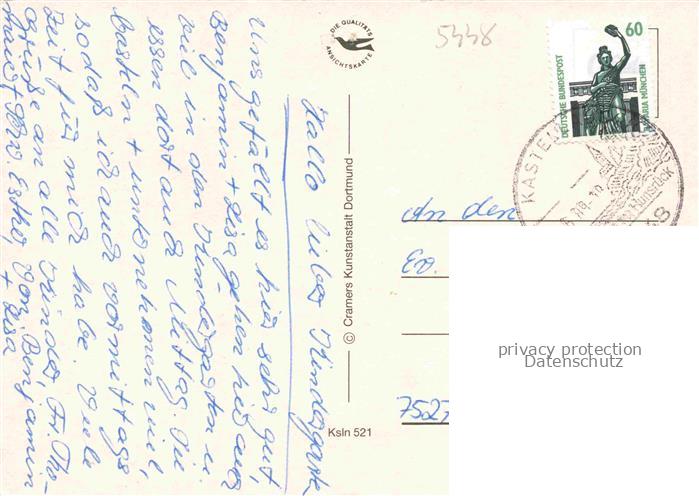 Hallo liebe Kindergarte
Uns gefällt es hier sehr gut,
Benjamin + Lisa gehen hier auch
viel in den Kindergarten u.
essen dort auch Mittag. Die
basteln + unternehmen viel,
sodaß ich auch vormittags
Zeit für mich habe. Viele
Grüße an alle Kinder, Fr. Tho-
von Benjamin
+ Lisa
DIE QUALITÄTS
ANSICHTSKARTE
© Cramers Kunstanstalt Dortmund
Ksln 521
5448
60
DEUTSCHE BUNDESPOST
BAVARIA MÜNCHEN
KASTEL
Hunsrück
An den
Ev.
7527
privacy protection
Datenschutz